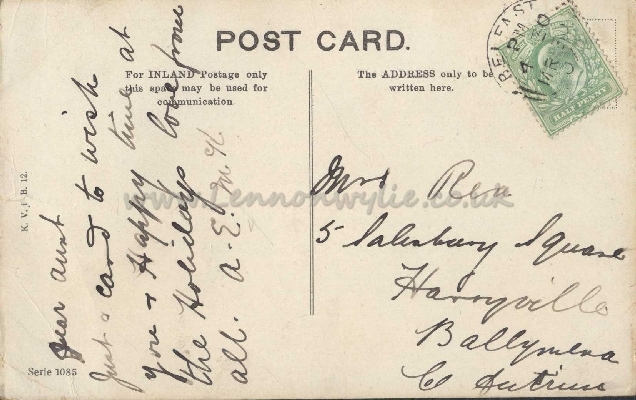 POST CARD.
For INLAND Postage only
this space may be used for
communication
The ADDRESS only to be
written here.
BELFAST
HALFPENNY
K. V. i B. 12.
Dear aunt
Just a card to wish
you a Happy time at
the Holidays love from
all. A. E. McK
Mrs Rea
5 Salisbury Square
Harryville
Ballymena
Co Antrim
Serie 1085
www.Lennonwylie.co.uk